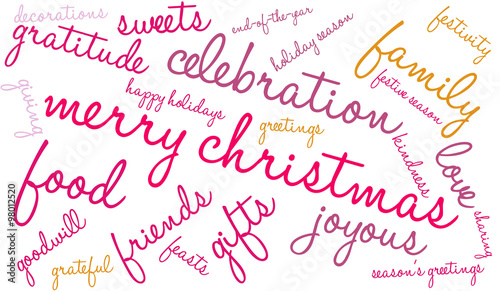 decorations
sweets
end-of-the-year
festivity
gratitude
holiday season
celebration
family
giving
happy holidays
festive season
merry christmas
greetings
kindness
love
food
sharing
friends
gifts
joyous
goodwill
feasts
grateful
season's greetings
Adobe Stock | #98012520